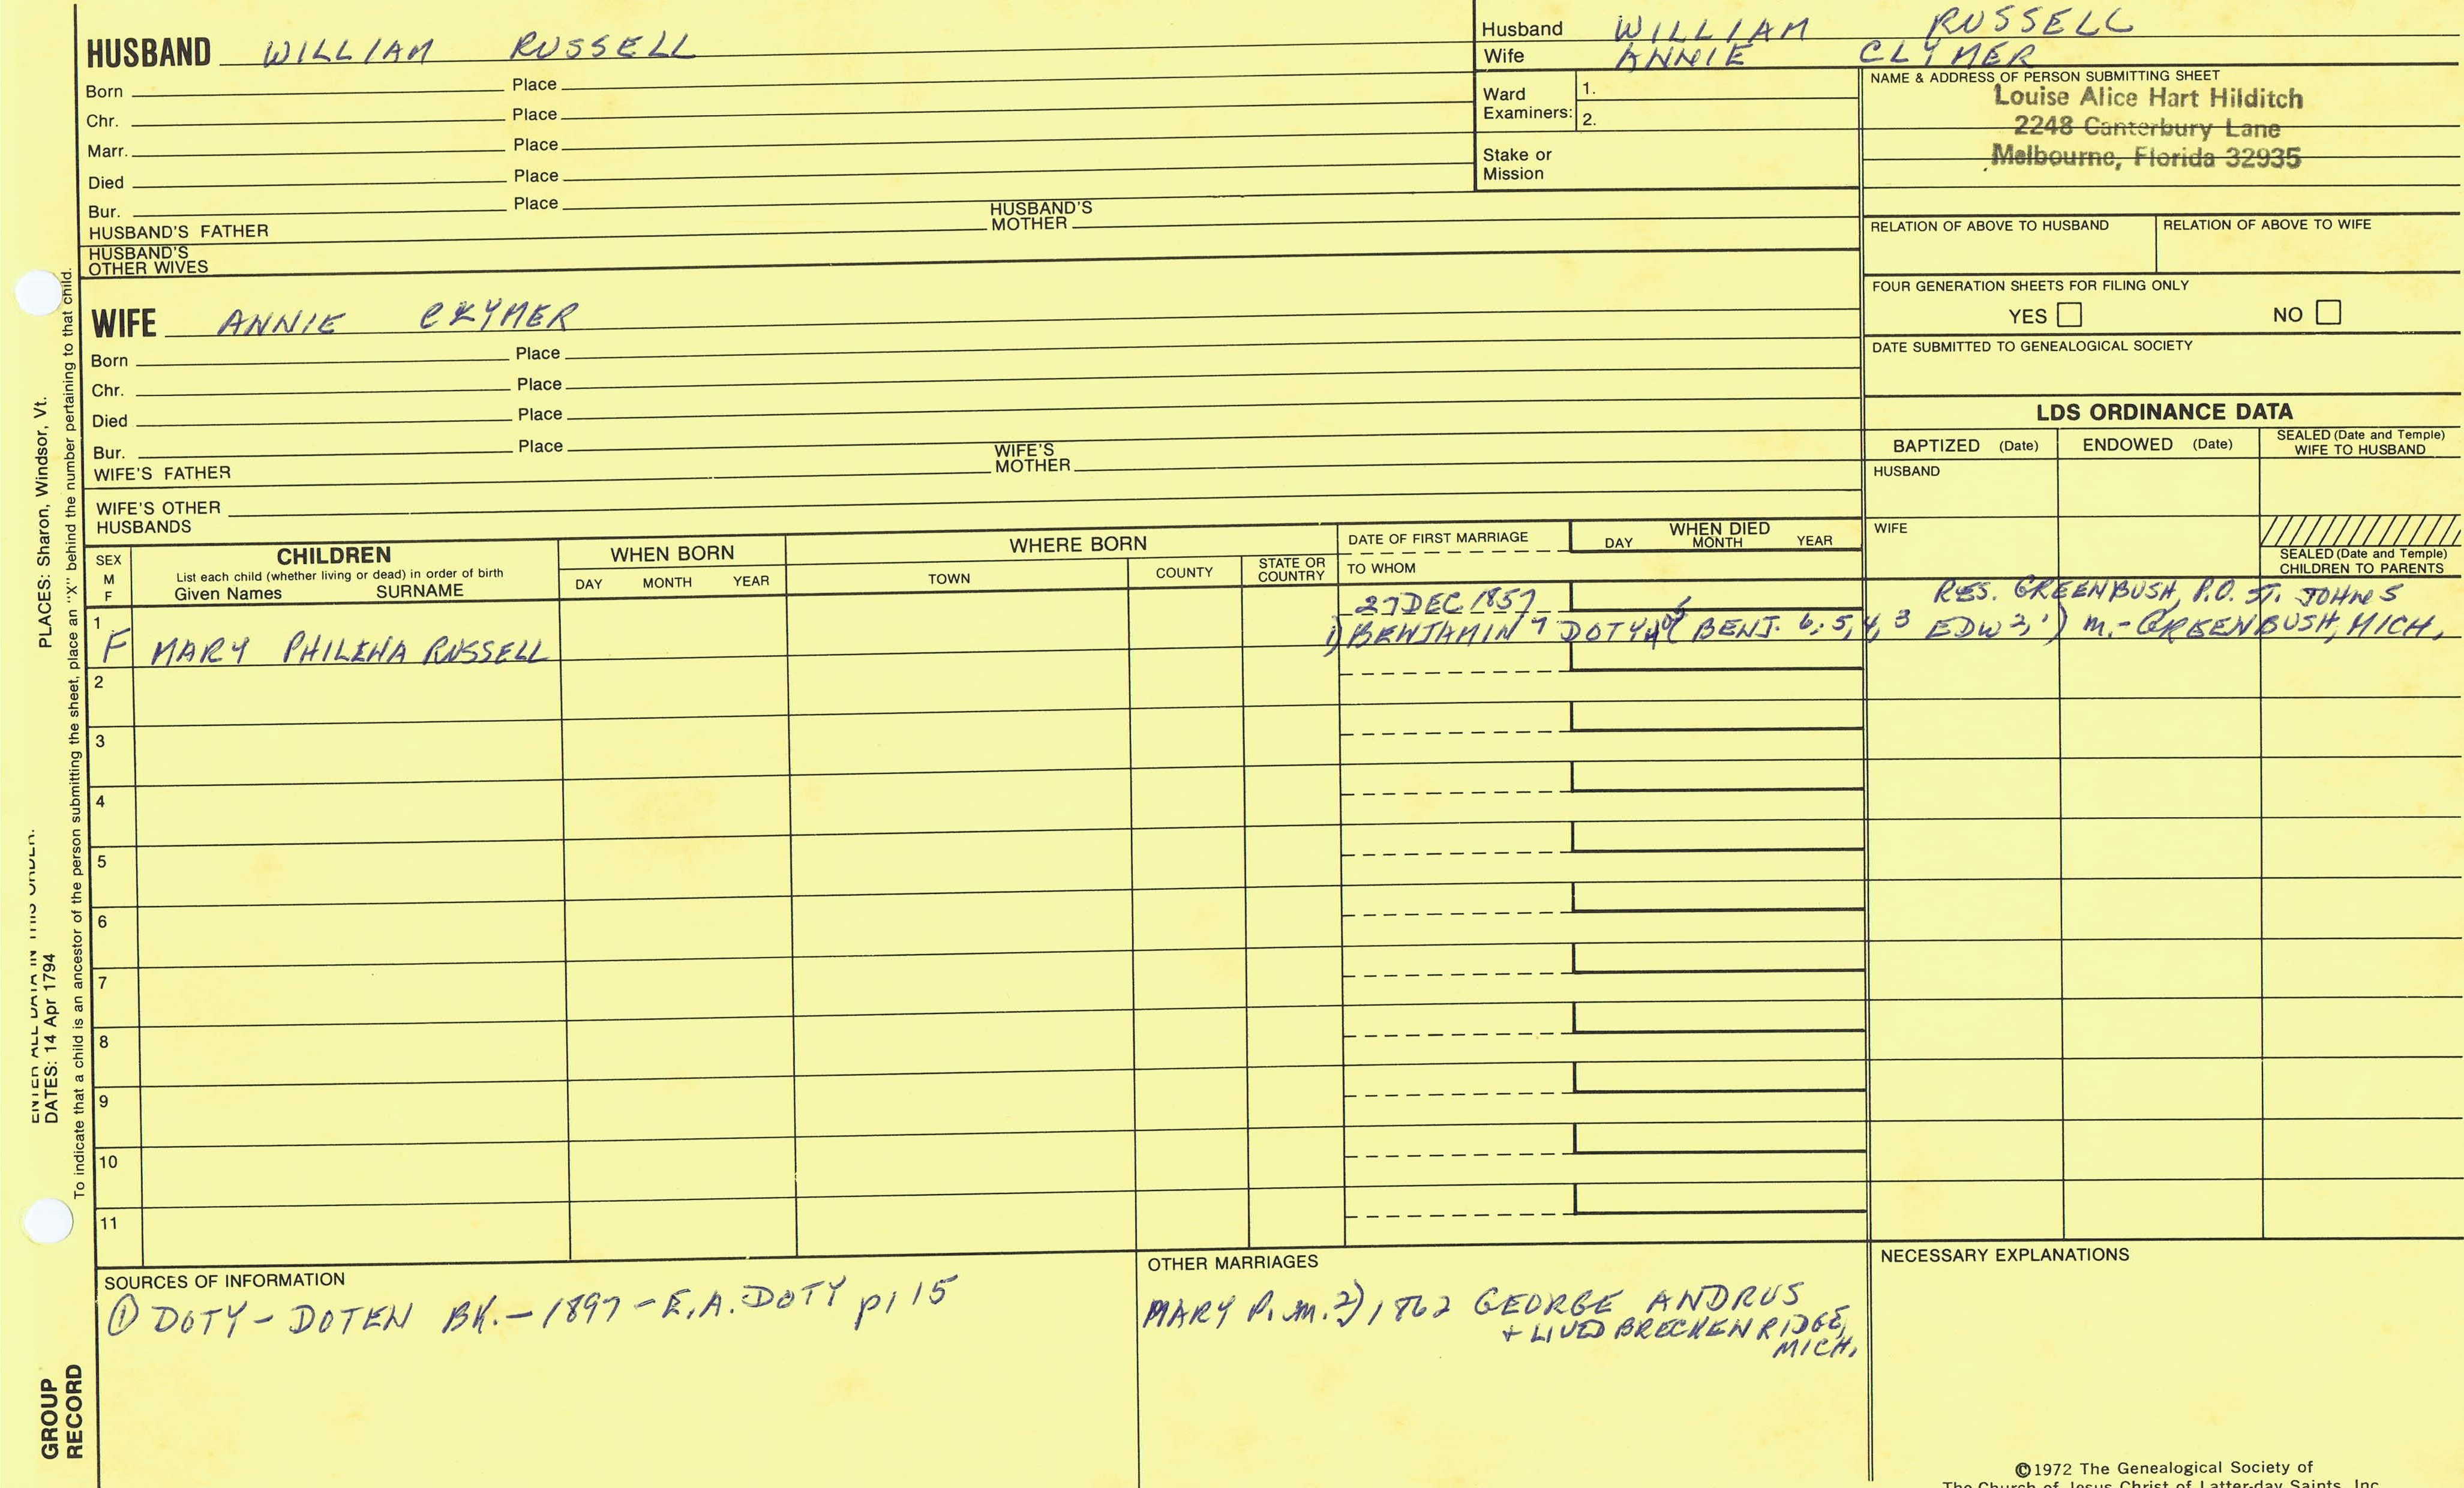 HUSBAND WILLIAM RUSSELL
Born Place
Chr. Place
Marr. Place
Died Place
Bur. Place
HUSBAND'S FATHER HUSBAND'S MOTHER
HUSBAND'S OTHER WIVES
Husband WILLIAM RUSSELL
Wife ANNIE CLYMER
Ward Examiners: 1.
2.
Stake or Mission
NAME & ADDRESS OF PERSON SUBMITTING SHEET
Louise Alice Hart Hilditch
2248 Canterbury Lane
Melbourne, Florida 32935
RELATION OF ABOVE TO HUSBAND RELATION OF ABOVE TO WIFE
FOUR GENERATION SHEETS FOR FILING ONLY
YES NO
DATE SUBMITTED TO GENEALOGICAL SOCIETY
WIFE ANNIE CLYMER
Born Place
Chr. Place
Died Place
Bur. Place
WIFE'S FATHER WIFE'S MOTHER
WIFE'S OTHER HUSBANDS
LDS ORDINANCE DATA
BAPTIZED (Date) ENDOWED (Date) SEALED (Date and Temple) WIFE TO HUSBAND
HUSBAND
WIFE
SEALED (Date and Temple) CHILDREN TO PARENTS
SEX M F
CHILDREN
List each child (whether living or dead) in order of birth
Given Names SURNAME
WHEN BORN
DAY MONTH YEAR
WHERE BORN
TOWN COUNTY STATE OR COUNTRY
DATE OF FIRST MARRIAGE
TO WHOM
WHEN DIED
DAY MONTH YEAR
27 DEC 1857 RES. GREENBUSH, P.O. ST. JOHNS
1 F MARY PHILENA RUSSELL 1) BENJAMIN 7 DOTY (BENJ. 6, 5, 4, 3 EDW 2, 1) m.- GREENBUSH, MICH.
2
3
4
5
6
7
8
9
10
11
SOURCES OF INFORMATION
① DOTY - DOTEN BK. - 1897 - E.A. DOTY p115
OTHER MARRIAGES
MARY P. m. 2) 1862 GEORGE ANDRUS
+ LIVED BRECKENRIDGE,
MICH.
NECESSARY EXPLANATIONS
©1972 The Genealogical Society of
The Church of Jesus Christ of Latter-day Saints, Inc.
ENTER ALL DATA IN THIS ORDER:
DATES: 14 Apr 1794 PLACES: Sharon, Windsor, Vt.
To indicate that a child is an ancestor of the person submitting the sheet, place an "X" behind the number pertaining to that child.
GROUP
RECORD